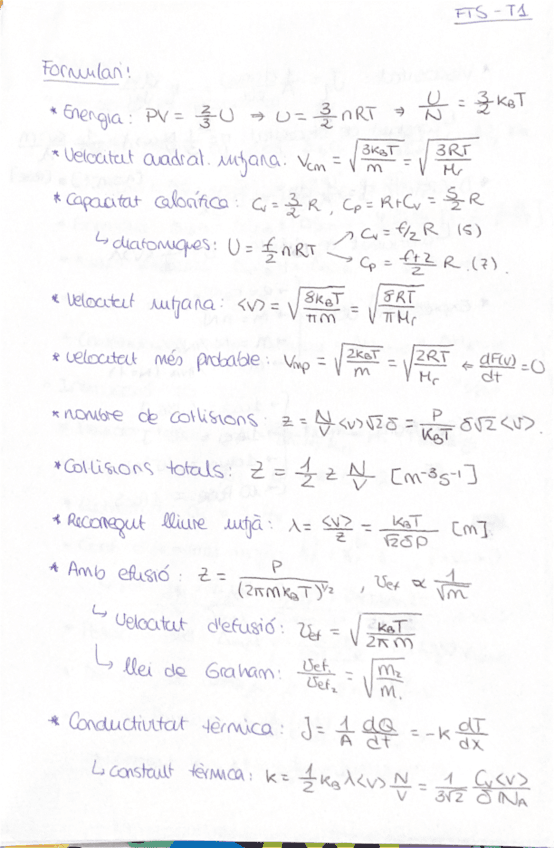 FTS - T1
Formulari:
* Energia: PV = 2/3 U ⇒ U = 3/2 nRT → U/N = 3/2 k_BT
* Velocitat quadràt. mitjana: V_cm = √(3k_BT/m) = √(3RT/M_r)
* Capacitat calorífica: C_v = 3/2 R, C_p = R+C_v = 5/2 R
↳ diatòmiques: U = f/2 nRT ↗ C_v = f/2 R (5)
↘ C_p = f+2/2 R. (7).
* Velocitat mitjana: <v> = √(8k_BT/πm) = √(8RT/πM_r)
* Velocitat més probable: V_mp = √(2k_BT/m) = √(2RT/M_r) ← dF(v)/dt = 0
* nombre de col·lisions: z = N/V <v> √2 δ = P/K_BT δ√2 <v>.
* Col·lisions totals: Z = 1/2 z N/V [m⁻³s⁻¹]
* Recorregut lliure mitjà: λ = <v>/z = K_BT/√2δP [m]
* Amb efusió: Z = P/(2πmk_BT)^1/2 , v_ef ∝ 1/√m
↳ Velocitat d'efusió: v_ef = √(k_BT/2πm)
↳ llei de Graham: v_ef₁/v_ef₂ = √(m₂/m₁)
* Conductivitat tèrmica: J = 1/A dQ/dt = -K dT/dx
↳ constant tèrmica: K = 1/2 k_B λ<v> N/V = 1/3√2 C_v<v>/δ N_A